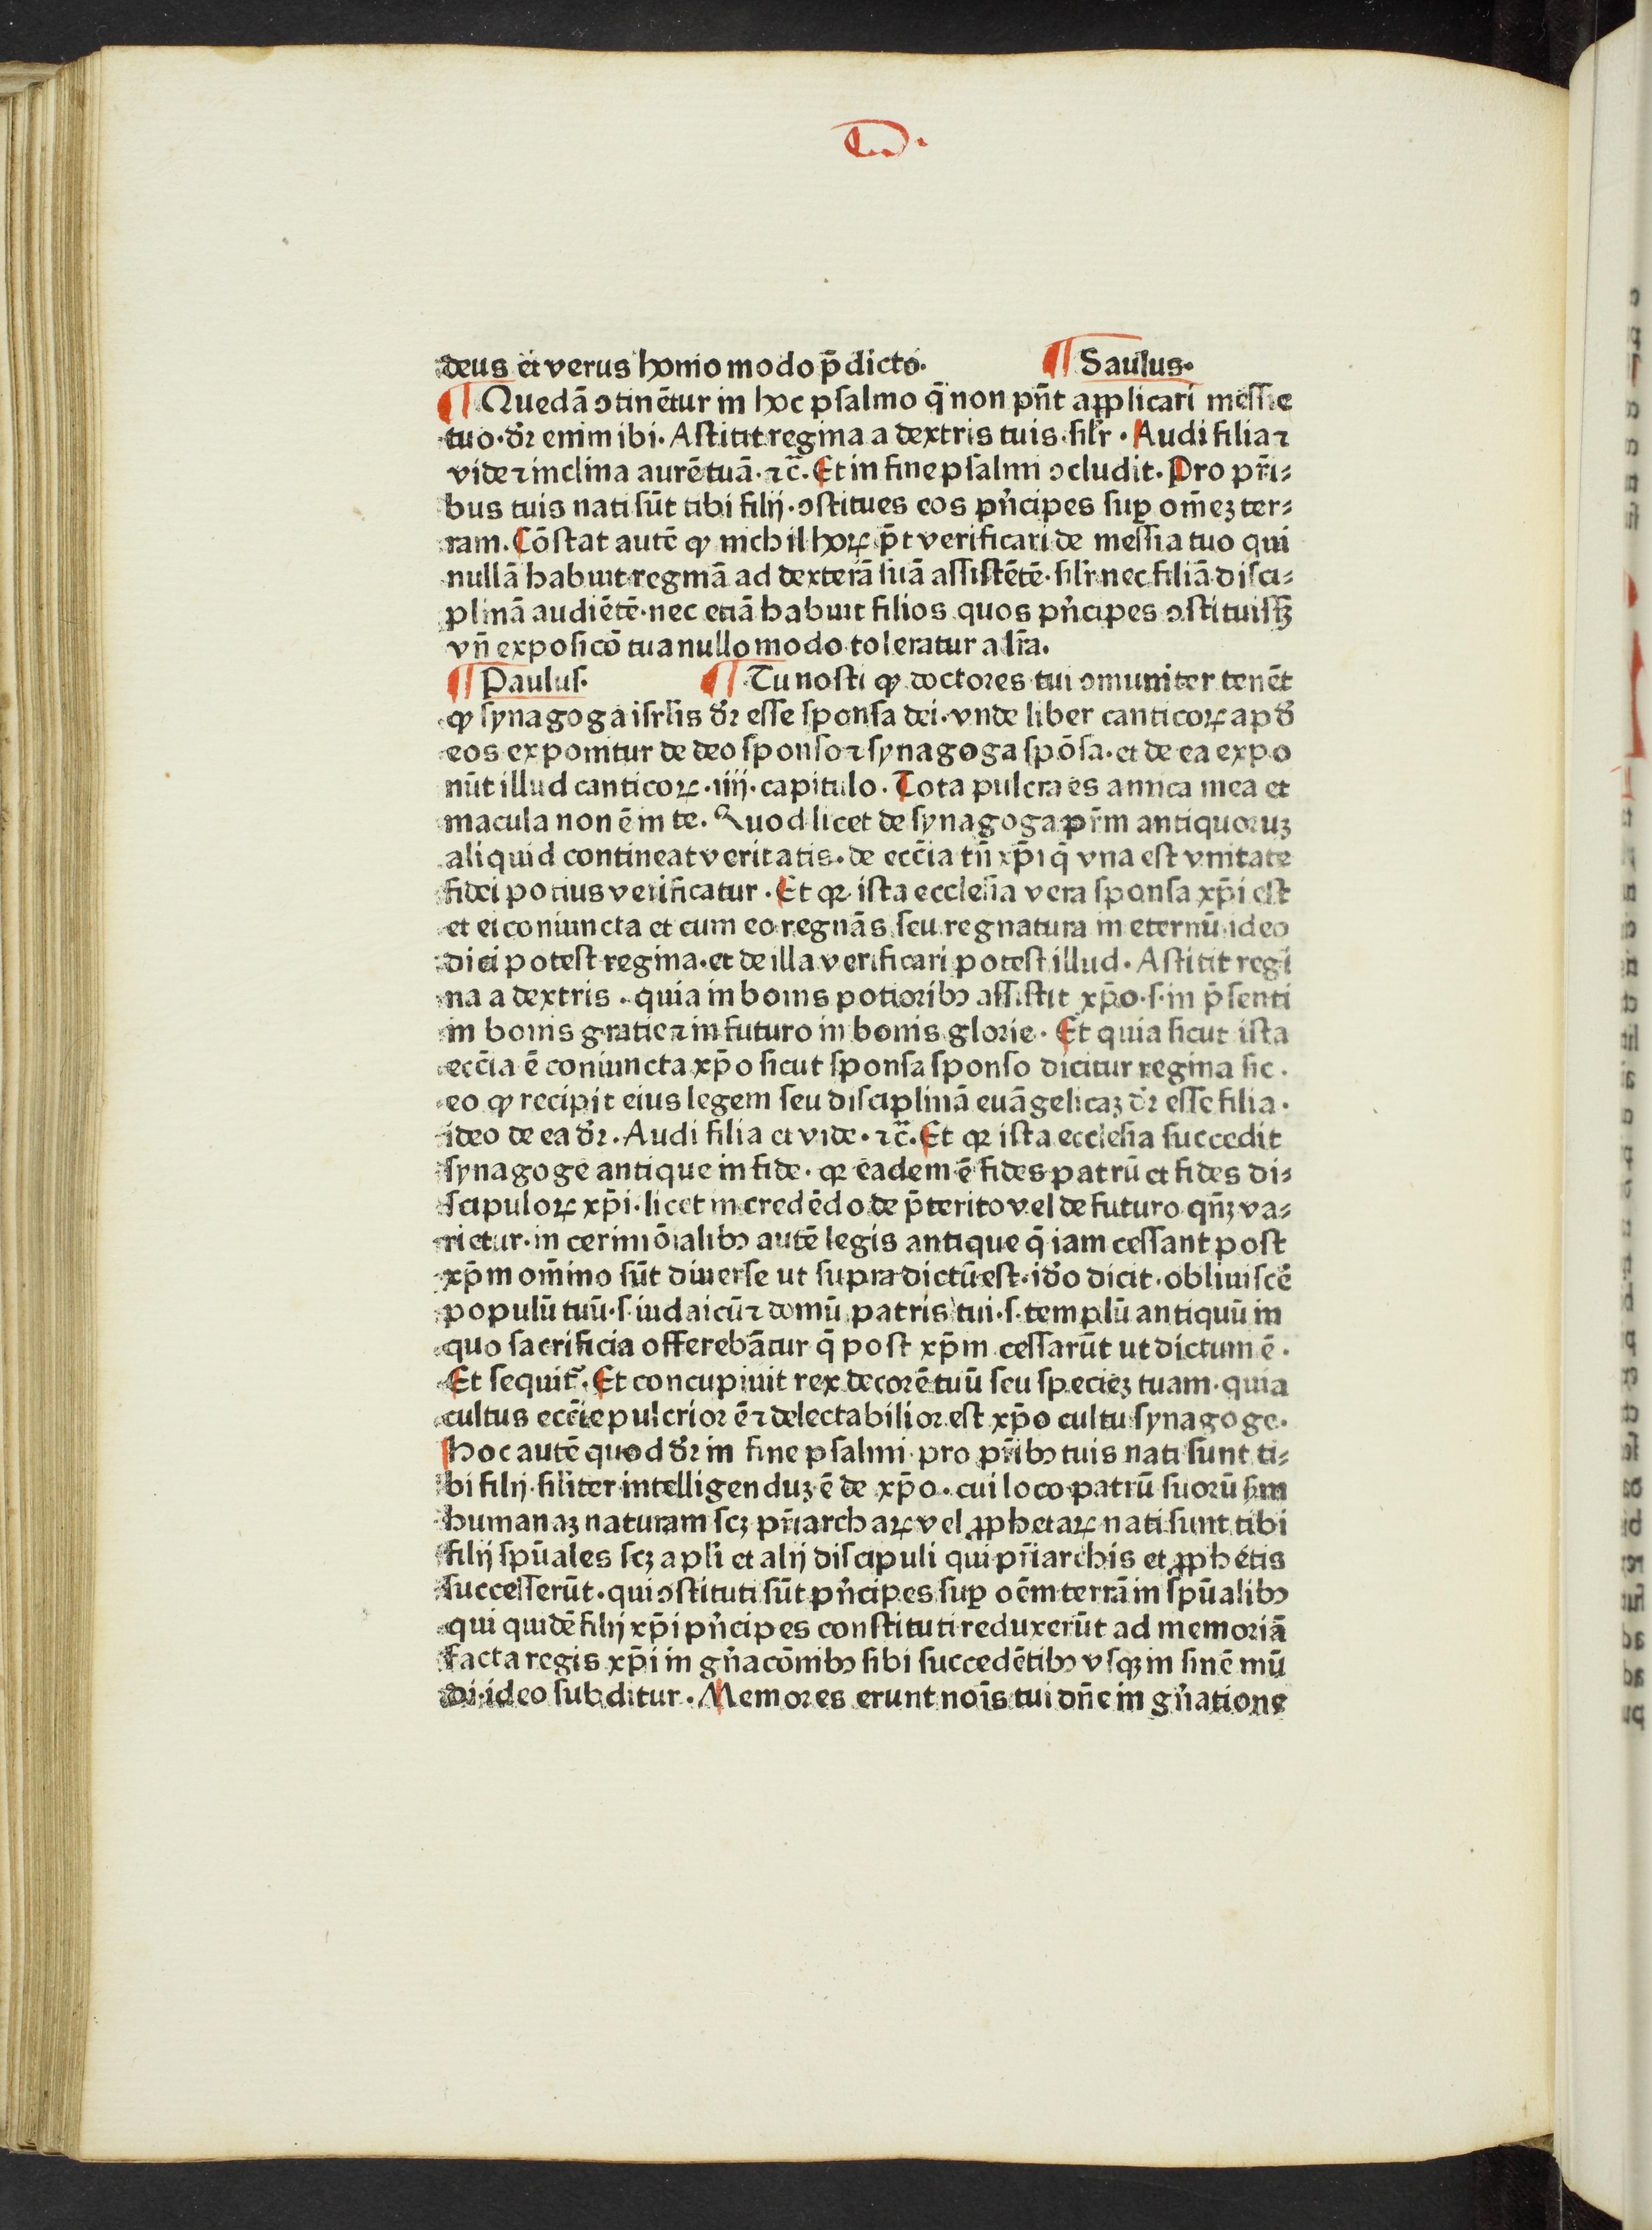 deus et verus homo modo p̄dicto. ¶ Saulus.
¶ Quedā ↄtinētur in hoc psalmo q̄ non pn̄t applicari messie
tuo. dr̄ enim ibi. Astitit regina a dextris tuis. silr̄. Audi filia ⁊
vide ⁊ inclina aurē tuā. ⁊c̄. Et in fine psalmi ↄcludit. Pro pr̄i⸗
bus tuis nati sūt tibi filij. ↄstitues eos pn̄cipes suꝑ om̄eꝫ ter⸗
ram. Cōstat autē ꝙ nichil hoꝝ p̄t verificari de messia tuo qui
nullā habuit reginā ad dexterā suā assistētē. silr̄ nec filiā disci⸗
plinā audiētē. nec etiā habuit filios quos pn̄cipes ↄstituissꝫ
vn̄ exposicō tua nullo modo toleratur a lr̄a.
¶ Paulus. ¶ Tu nosti ꝙ doctores tui ↄmuniter tenēt
ꝙ synagoga isrl̄is dr̄ esse sponsa dei. vnde liber canticoꝝ apd̄
eos exponitur de deo sponso ⁊ synagoga spōsa. et de ea expo
nūt illud canticoꝝ. iiij. capitulo. Tota pulcra es amica mea et
macula non ē in te. Quod licet de synagoga pr̄m antiquoruꝫ
aliquid contineat veritatis. de ecc̄ia tn̄ xp̄i q̄ vna est vnitate
fidei potius verificatur. Et qꝛ ista ecclesia vera sponsa xp̄i est
et ei coniuncta et cum eo regnās seu regnatura in eternū ideo
dici potest regina. et de illa verificari potest illud. Astitit regi
na a dextris. quia in bonis potioribꝰ assistit xp̄o. s. in p̄senti
in bonis gratie ⁊ in futuro in bonis glorie. Et quia sicut ista
ecc̄ia ē coniuncta xp̄o sicut sponsa sponso dicitur regina sic.
eo ꝙ recipit eius legem seu disciplinā euāgelicaꝫ dr̄ esse filia.
ideo de ea dr̄. Audi filia et vide. ⁊c̄. Et qꝛ ista ecclesia succedit
synagoge antique in fide. qꝛ eadem ē fides patrū et fides di⸗
scipuloꝝ xp̄i. licet in credēdo de p̄terito vel de futuro qn̄ꝫ va⸗
rietur. in cerimōialibꝰ autē legis antique q̄ iam cessant post
xp̄m om̄ino sūt diuerse ut supra dictū est. id̄o dicit. obliuiscē
populū tuū. s. iudaicū ⁊ domū patris tui. s. templū antiquū in
quo sacrificia offerebātur q̄ post xp̄m cessarūt ut dictum ē.
Et sequit᷑. Et concupiuit rex decorē tuū seu specieꝫ tuam. quia
cultus ecc̄ie pulcrior ē ⁊ delectabilior est xp̄o cultu synagoge.
Hoc autē quod dr̄ in fine psalmi. pro pr̄ibꝰ tuis nati sunt ti⸗
bi filij. siliter intelligenduꝫ ē de xp̄o. cui loco patrū suorū sm̄
humanaꝫ naturam scꝫ pr̄iarchaꝝ vel ꝓphetaꝝ nati sunt tibi
filij spūales scꝫ apl̄i et alij discipuli qui pr̄iarchis et ꝓphetis
successerūt. qui ↄstituti sūt pn̄cipes suꝑ oēm terrā in spūalibꝰ
qui quidē filij xp̄i pn̄cipes constituti reduxerūt ad memoriā
facta regis xp̄i in gn̄acōnibꝰ sibi succedētibꝰ vsqꝫ in finē mū
di. ideo subditur. Memores erunt nois̄ tui dn̄e in gn̄atione